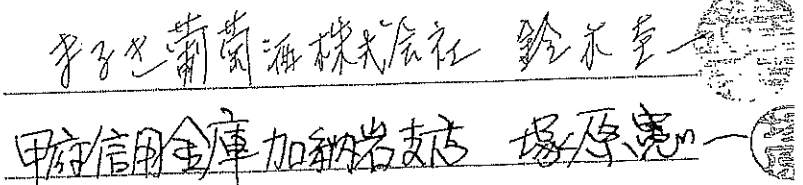 まるき葡萄酒株式会社 鈴木卓一
甲府信用金庫加納岩支店 塚原寛一